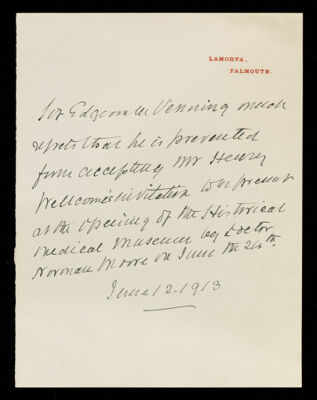 LAMORVA,
FALMOUTH.
Sir Edgcombe Venning much
regrets that he is prevented
from accepting Mr Henry
Wellcome's invitation to be present
at the opening of the Historical
Medical Museum by Doctor
Norman Moore on June the 24th.
June 12-1913